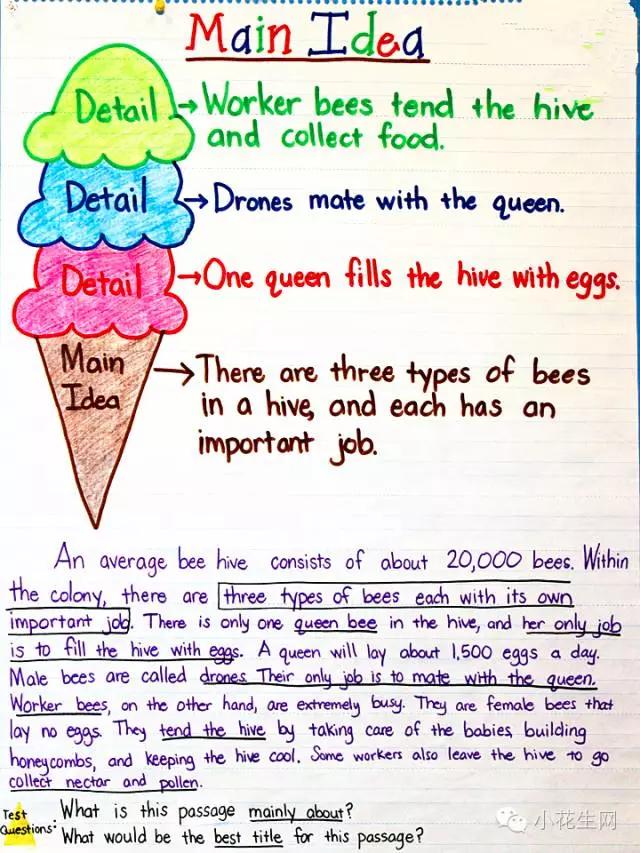 Main Idea
Detail → Worker bees tend the hive
and collect food.
Detail → Drones mate with the queen.
Detail → One queen fills the hive with eggs.
Main
Idea
→ There are three types of bees
in a hive, and each has an
important job.
An average bee hive consists of about 20,000 bees. Within
the colony, there are three types of bees each with its own
important job. There is only one queen bee in the hive, and her only job
is to fill the hive with eggs. A queen will lay about 1,500 eggs a day.
Male bees are called drones. Their only job is to mate with the queen.
Worker bees, on the other hand, are extremely busy. They are female bees that
lay no eggs. They tend the hive by taking care of the babies, building
honeycombs, and keeping the hive cool. Some workers also leave the hive to go
collect nectar and pollen.
Test
Questions:
What is this passage mainly about?
What would be the best title for this passage?
小花生网